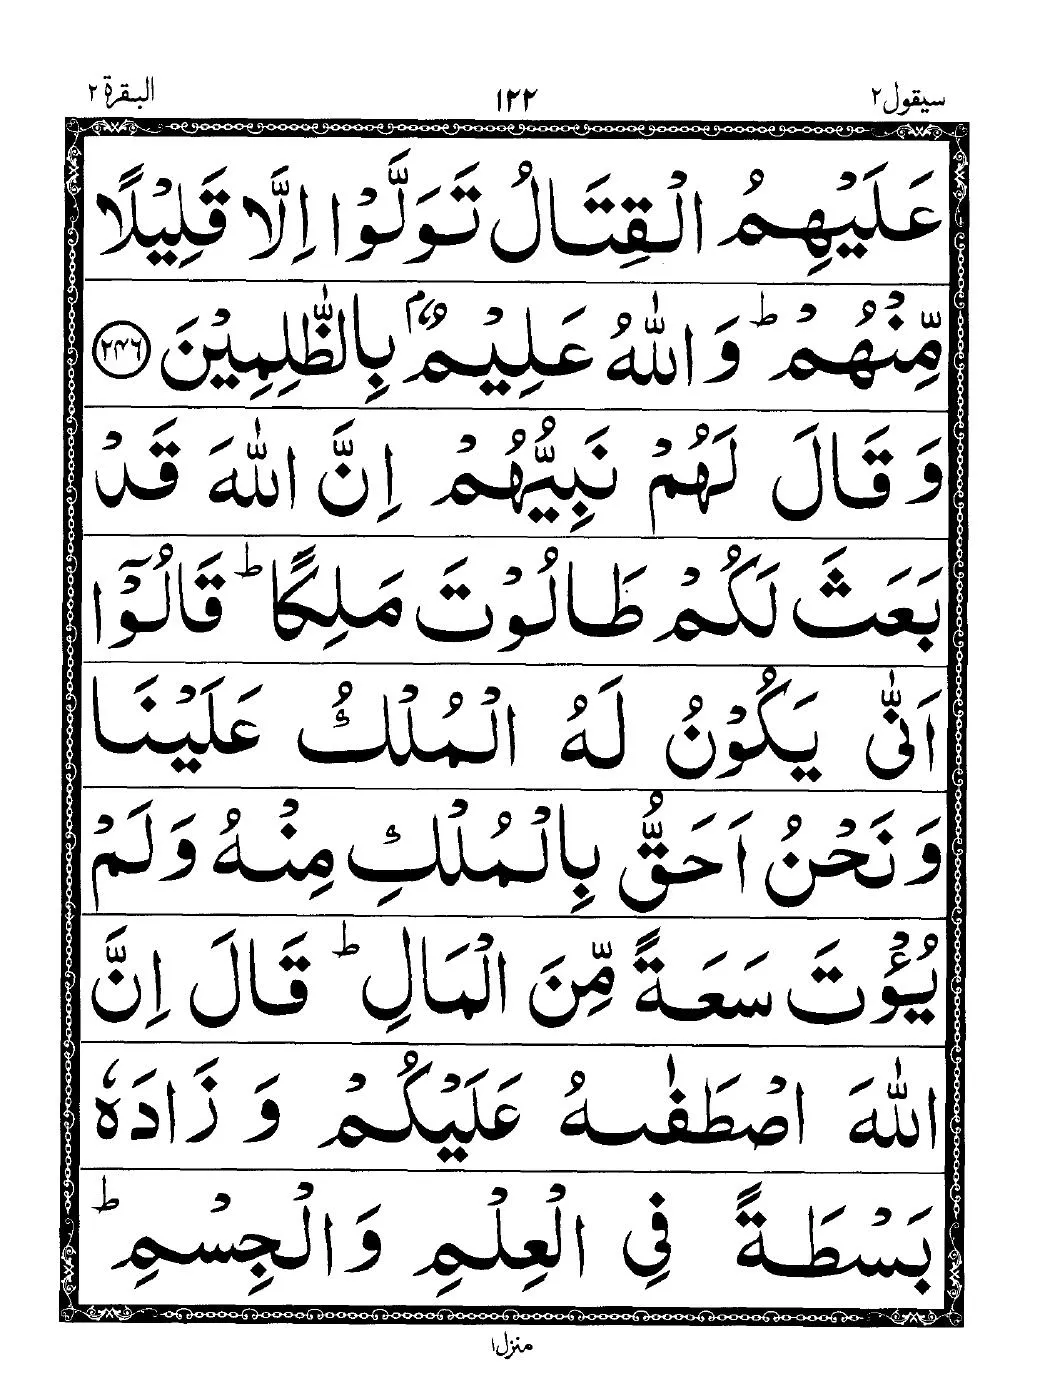 سيقول ٢ ١٢٢ البقرة ٢
عَلَيْهِمُ الْقِتَالُ تَوَلَّوْا اِلَّا قَلِيْلًا
مِّنْهُمْ ؕ وَاللّٰهُ عَلِيْمٌۢ بِالظّٰلِمِيْنَ ﴿۲۴۶﴾
وَقَالَ لَهُمْ نَبِيُّهُمْ اِنَّ اللّٰهَ قَدْ
بَعَثَ لَكُمْ طَالُوْتَ مَلِكًا ؕ قَالُوْٓا
اَنّٰى يَكُوْنُ لَهُ الْمُلْكُ عَلَيْنَا
وَنَحْنُ اَحَقُّ بِالْمُلْكِ مِنْهُ وَلَمْ
يُؤْتَ سَعَةً مِّنَ الْمَالِ ؕ قَالَ اِنَّ
اللّٰهَ اصْطَفٰىهُ عَلَيْكُمْ وَزَادَهٗ
بَسْطَةً فِي الْعِلْمِ وَالْجِسْمِ ؕ
منزل ١